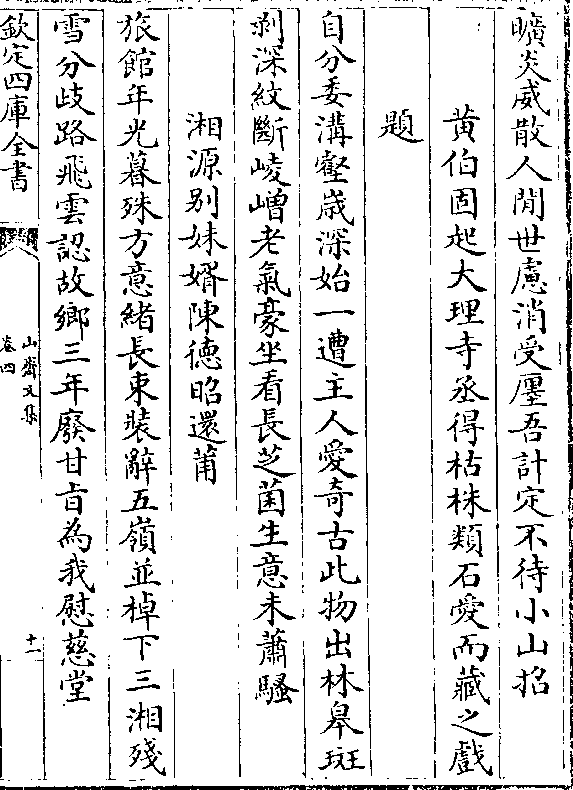 曠炎威散人閒世慮消受廛吾計定不待小山招
黄伯固起大理寺丞得枯株類石愛而藏之戲
題
自分委溝壑歳深始一遭主人愛奇古此物出林皋斑
剥深紋斷崚嶒老氣豪坐看長芝菌生意未蕭騷
湘源别妹婿陳徳昭還莆
旅館年光暮殊方意緒長束裝辭五嶺並棹下三湘殘
雪分歧路飛雲認故鄉三年廢甘㫖為我慰慈堂
欽定四庫全書
山齋文集
卷四
十一